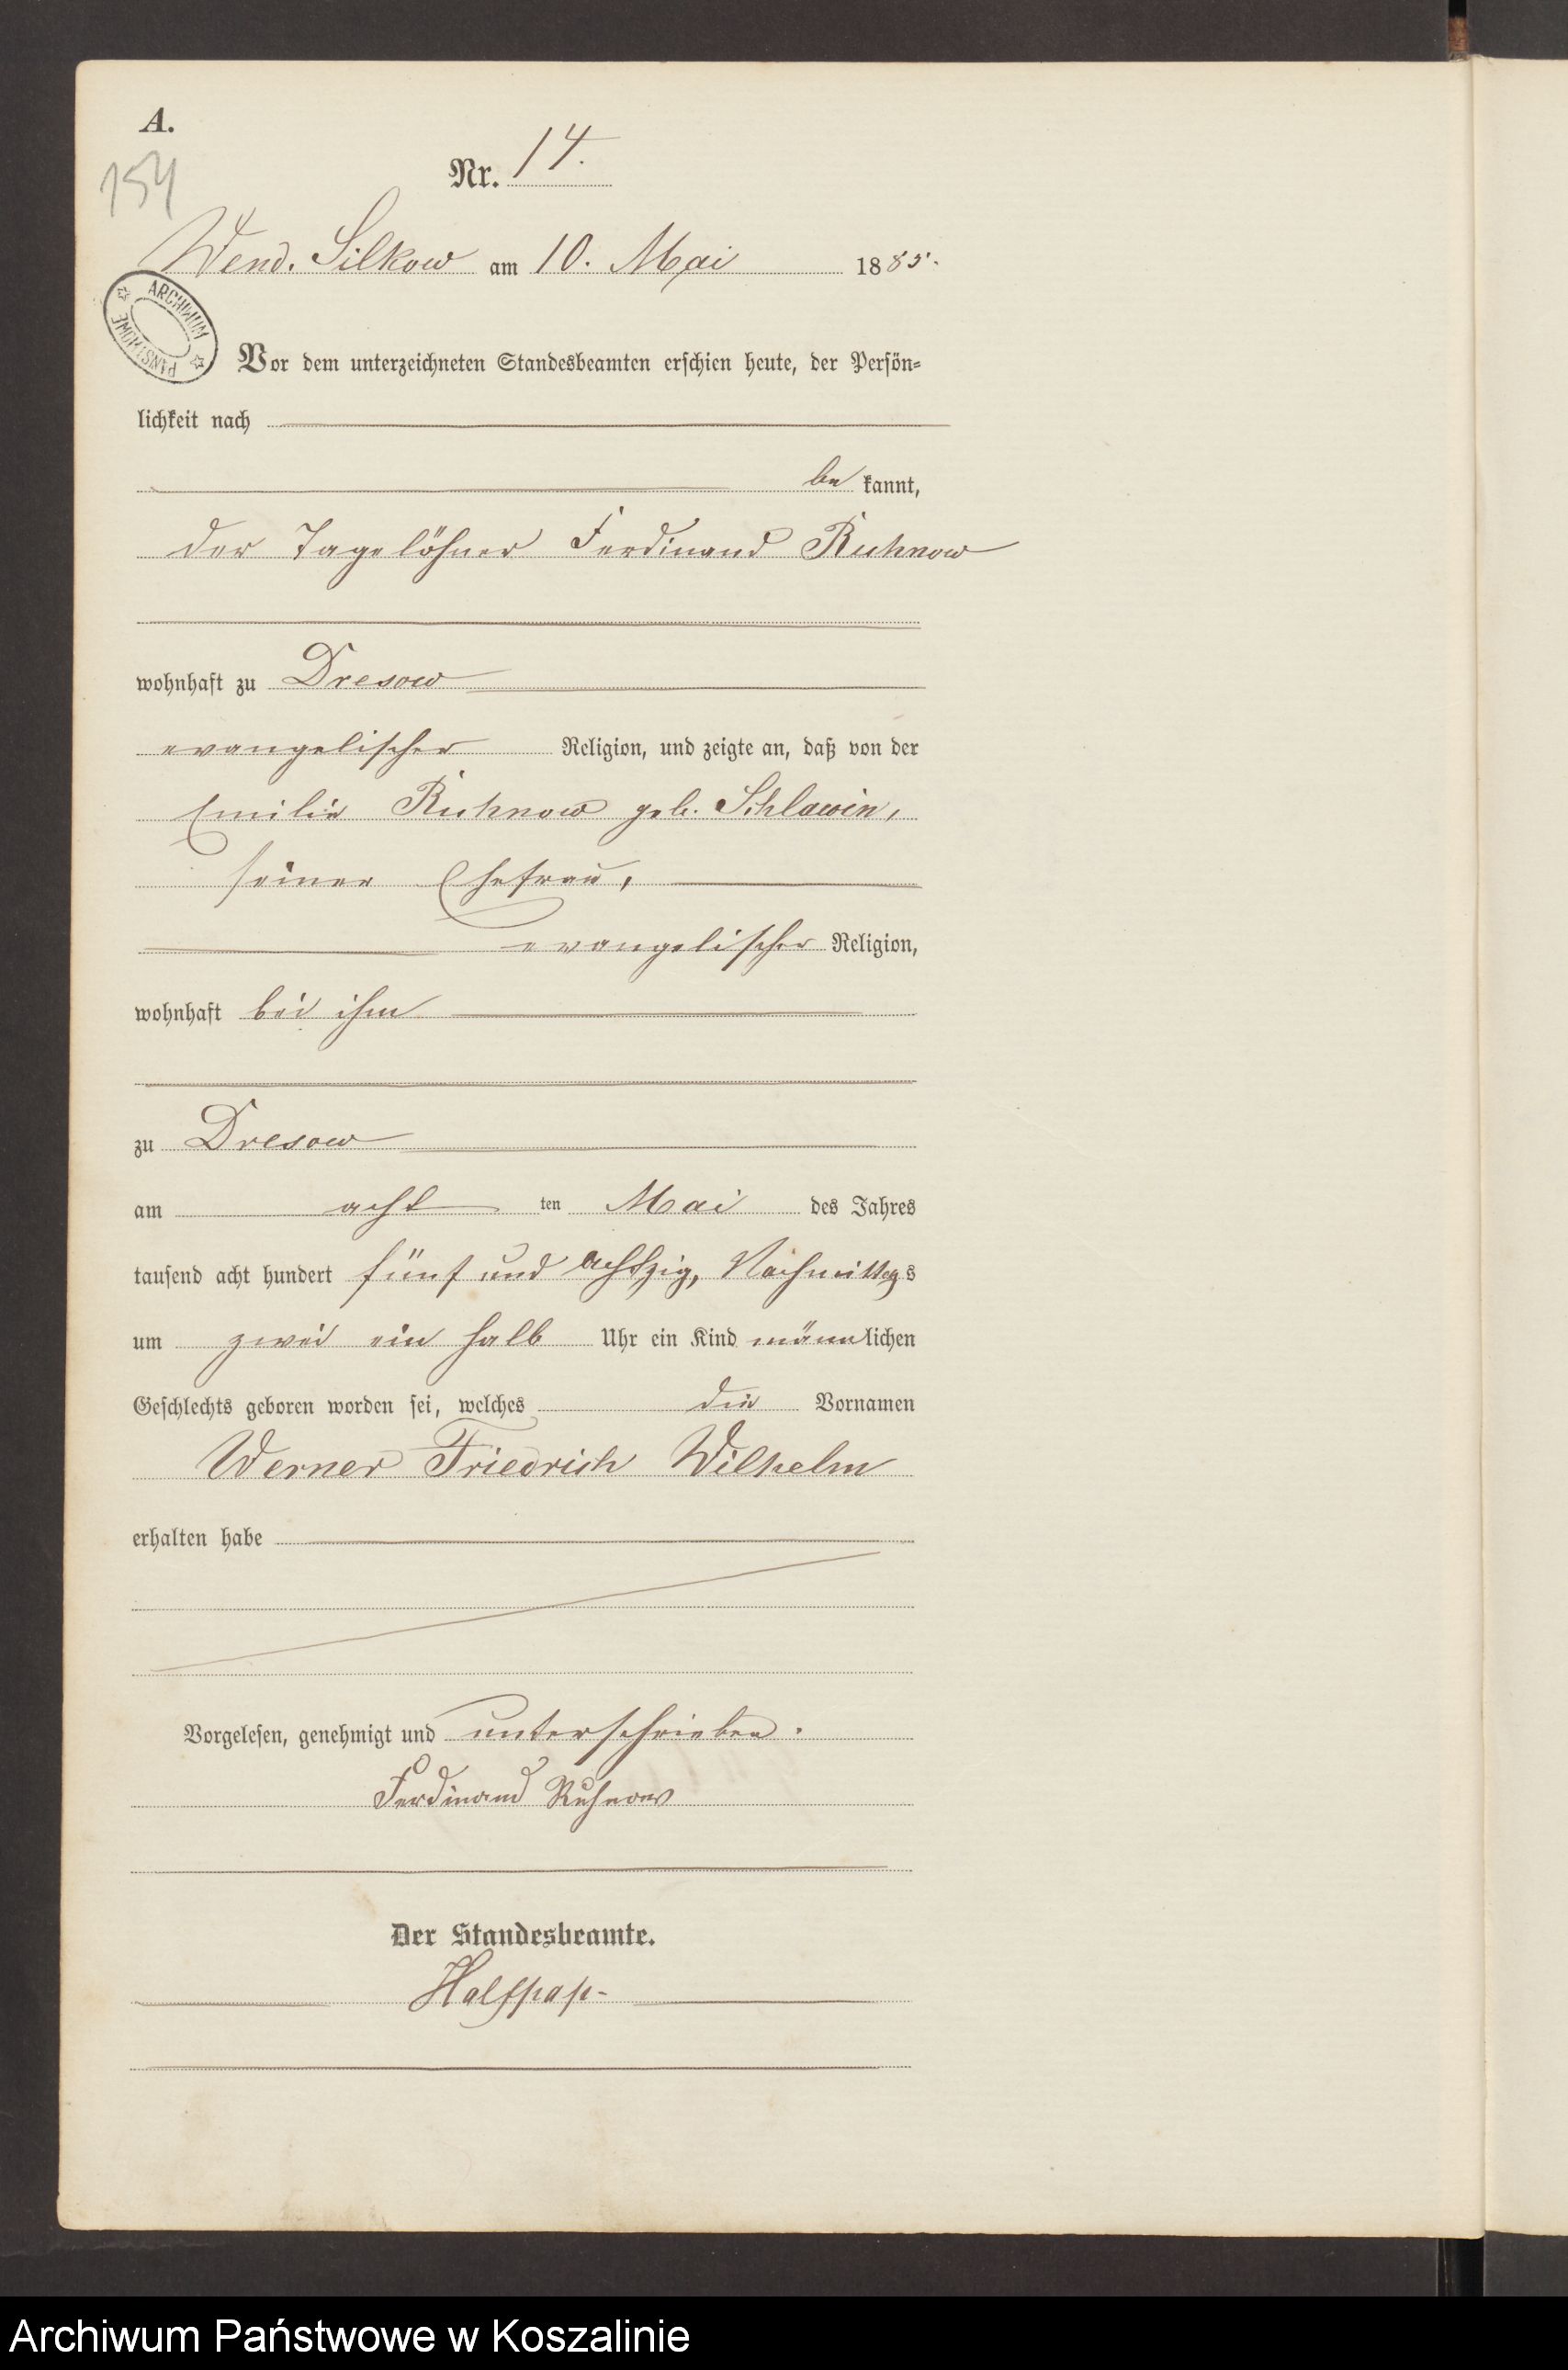 A.
154
Nr. 14.
Wend. Silkow am 10. Mai 1885.
ARCHIWUM PAŃSTWOWE
Vor dem unterzeichneten Standesbeamten erschien heute, der Persön-
lichkeit nach
be kannt,
der Tagelöhner Ferdinand Ruhnow
wohnhaft zu Dresow
evangelischer Religion, und zeigte an, daß von der
Emilie Ruhnow geb. Schlawin,
seiner Ehefrau,
evangelischer Religion,
wohnhaft bei ihm
zu Dresow
am acht ten Mai des Jahres
tausend acht hundert fünf und achtzig, Nachmittags
um zwei ein halb Uhr ein Kind männlichen
Geschlechts geboren worden sei, welches die Vornamen
Werner Friedrich Wilhelm
erhalten habe
Vorgelesen, genehmigt und unterschrieben.
Ferdinand Ruhnow
Der Standesbeamte.
Halfpap
Archiwum Państwowe w Koszalinie